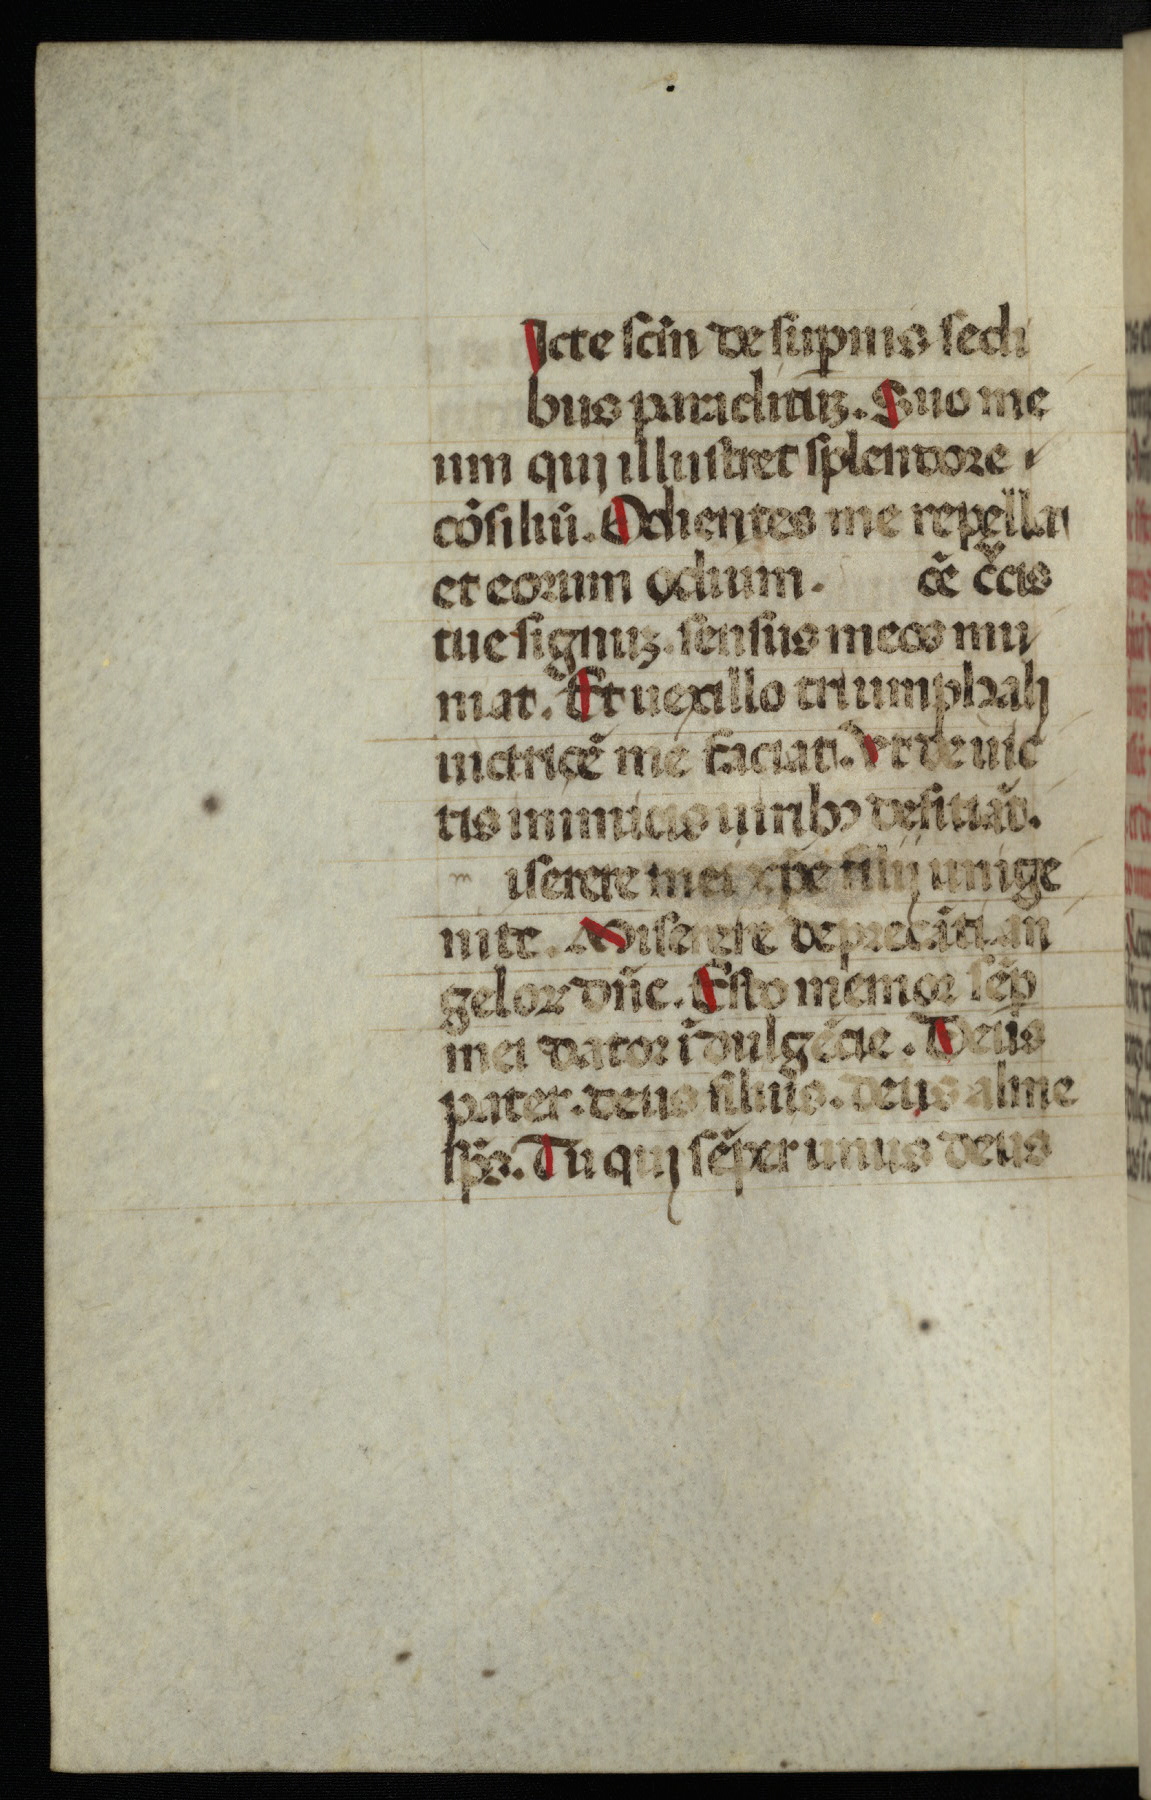 Icte scm̄ de sup̱nis sedi
bus paraclituʒ. Suo me
um quj illustret splendore
cōsiliū. Odientes me repellat
et eorum odium. cē c̄cis
tue signuʒ. sensus meos mu
niat. Et uexillo triumphalj
uictricē me faciat. Vt deuic
tis inimicis uiribꝰ desitiāt.
m iserere mei xp̄e filij unige
nite. Miserere deprecāti an
gelor dn̄e. Esto memor sēp
mei dator ĩdulgēcie. Deus
pater. deus filius. deus alme
sp̄s. Tu quj sēper unus deus